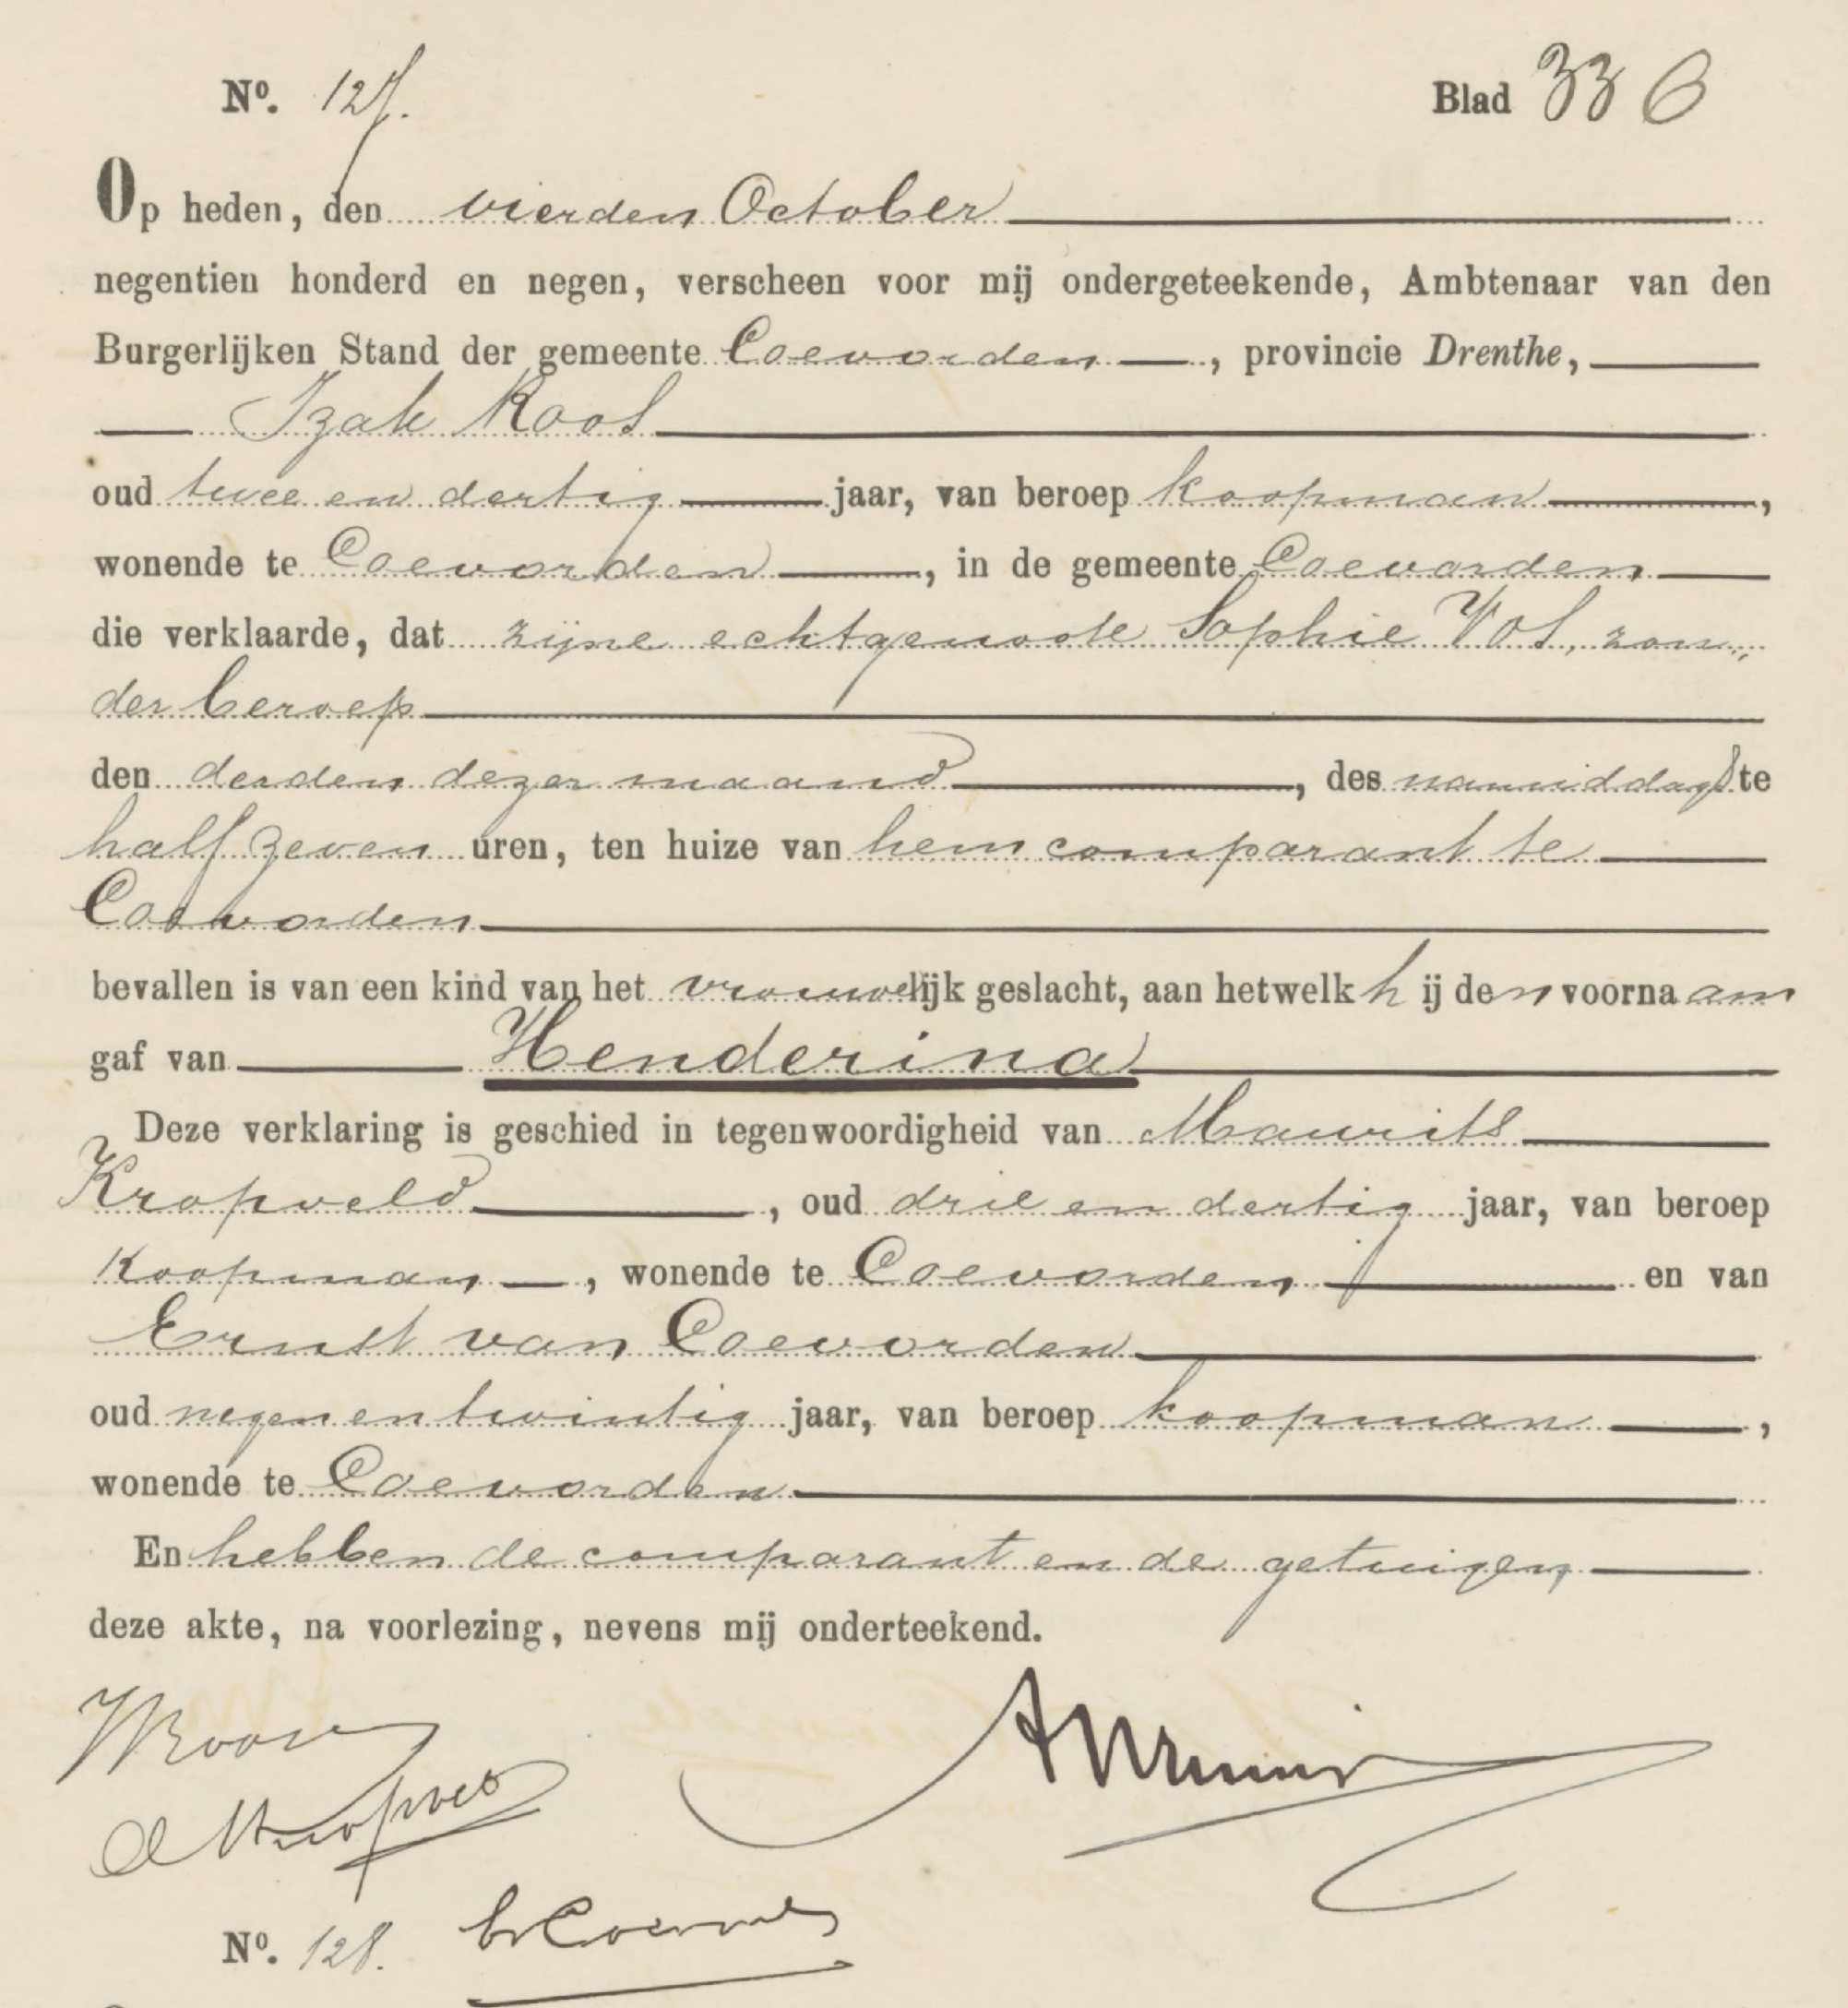 Nº. 127.
Blad 33
Op heden, den vierden October
negentien honderd en negen, verscheen voor mij ondergeteekende, Ambtenaar van den
Burgerlijken Stand der gemeente Coevorden, provincie Drenthe,
Izak Roos
oud twee en dertig jaar, van beroep koopman,
wonende te Coevorden, in de gemeente Coevorden
die verklaarde, dat zijne echtgenoote Sophie Vos, zon-
der beroep
den derden dezer maand, des namiddags te
half zeven uren, ten huize van hem comparant te
Coevorden
bevallen is van een kind van het vrouwelijk geslacht, aan hetwelk hij den voornaam
gaf van Henderina
Deze verklaring is geschied in tegenwoordigheid van Maurits
Kropveld, oud drie en dertig jaar, van beroep
koopman, wonende te Coevorden en van
Ernst van Coevorden
oud negen en twintig jaar, van beroep koopman,
wonende te Coevorden
En hebben de comparant en de getuigen,
deze akte, na voorlezing, nevens mij onderteekend.
IRoos
MKropveld
Nº. 128.